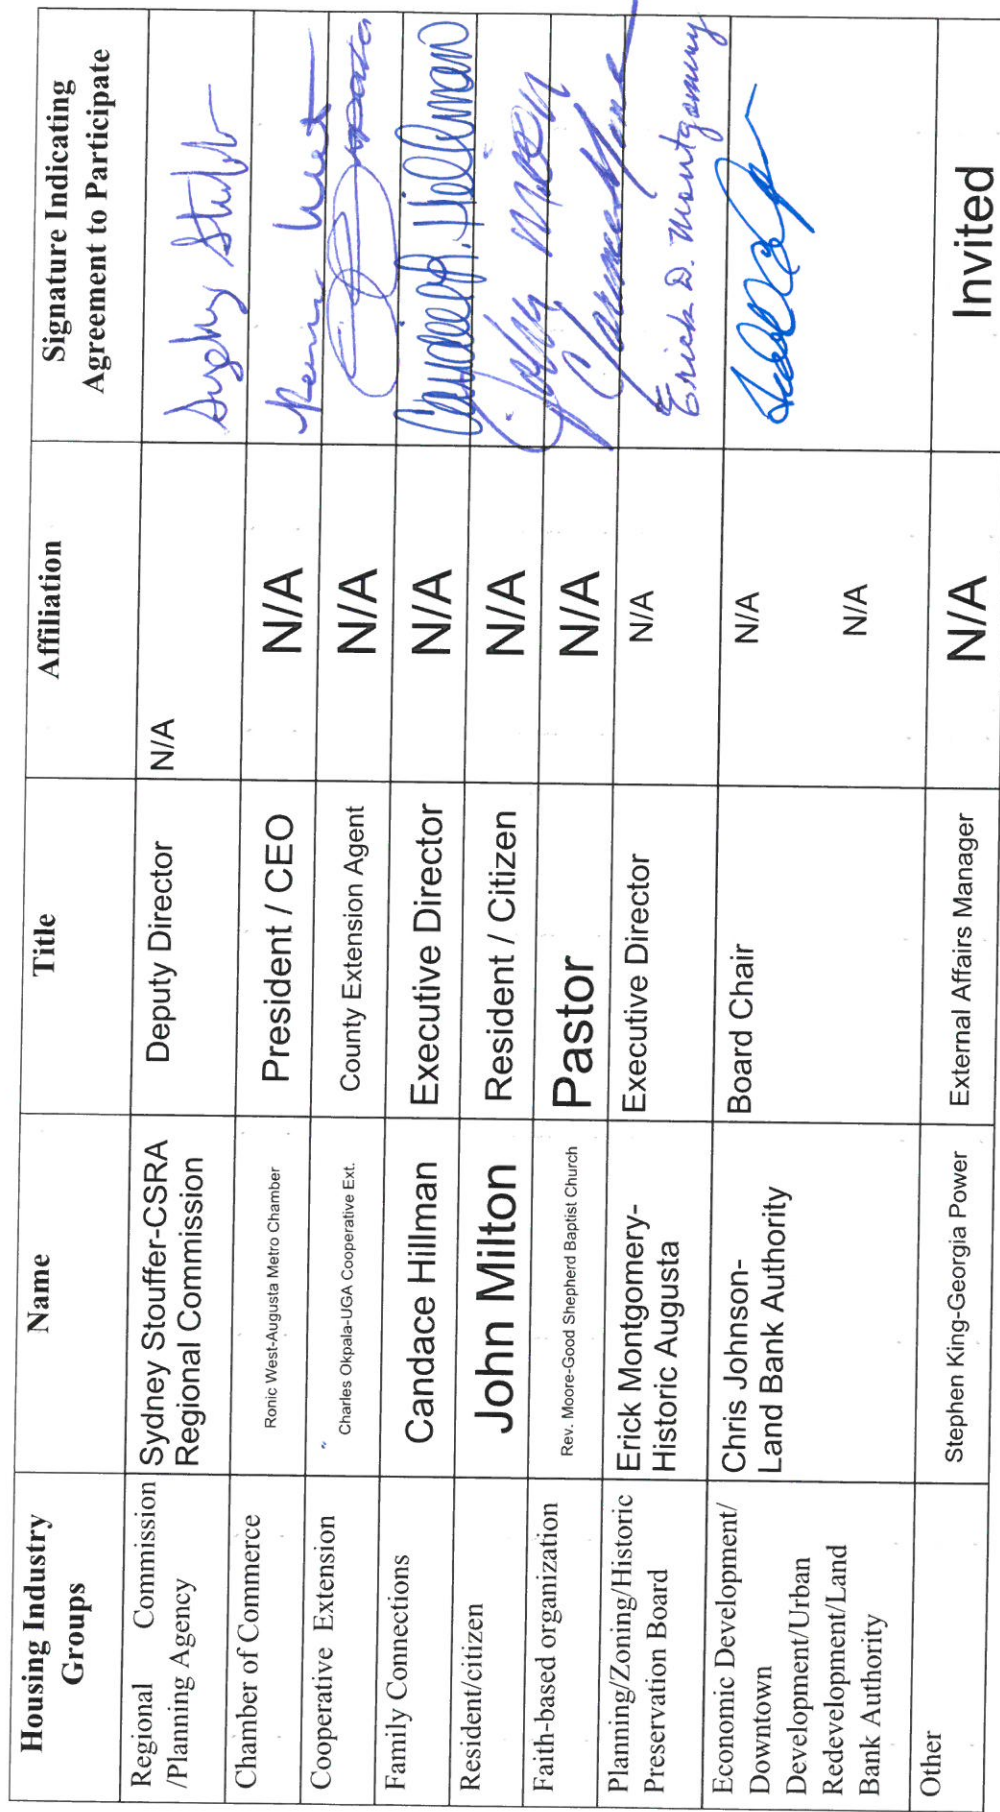 Housing Industry Groups Name Title Affiliation Signature Indicating Agreement to Participate
Regional Commission /Planning Agency Sydney Stouffer-CSRA Regional Commission Deputy Director N/A
Chamber of Commerce Ronic West-Augusta Metro Chamber President / CEO N/A
Cooperative Extension Charles Okpala-UGA Cooperative Ext. County Extension Agent N/A
Family Connections Candace Hillman Executive Director N/A Candace R. Hillman
Resident/citizen John Milton Resident / Citizen N/A
Faith-based organization Rev. Moore-Good Shepherd Baptist Church Pastor N/A
Planning/Zoning/Historic Preservation Board Erick Montgomery-Historic Augusta Executive Director N/A Erick D. Montgomery
Economic Development/ Downtown Development/Urban Redevelopment/Land Bank Authority Chris Johnson-Land Bank Authority Board Chair N/A N/A
Other Stephen King-Georgia Power External Affairs Manager N/A Invited